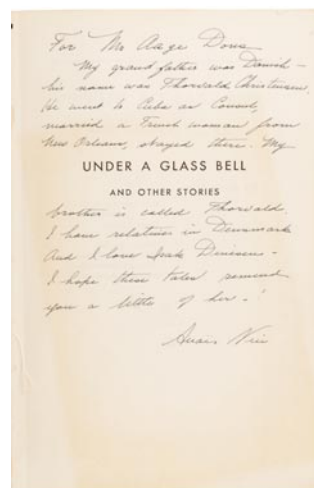 For Mr Aage Dons
My grandfather was Danish –
his name was Thorvald Christensen.
He went to Cuba as Consul,
married a French woman from
New Orleans, stayed there. My
UNDER A GLASS BELL
AND OTHER STORIES
brother is called Thorvald.
I have relatives in Denmark
And I love Isak Dinesen –
I hope these tales remind
you a little of her –
Anais Nin